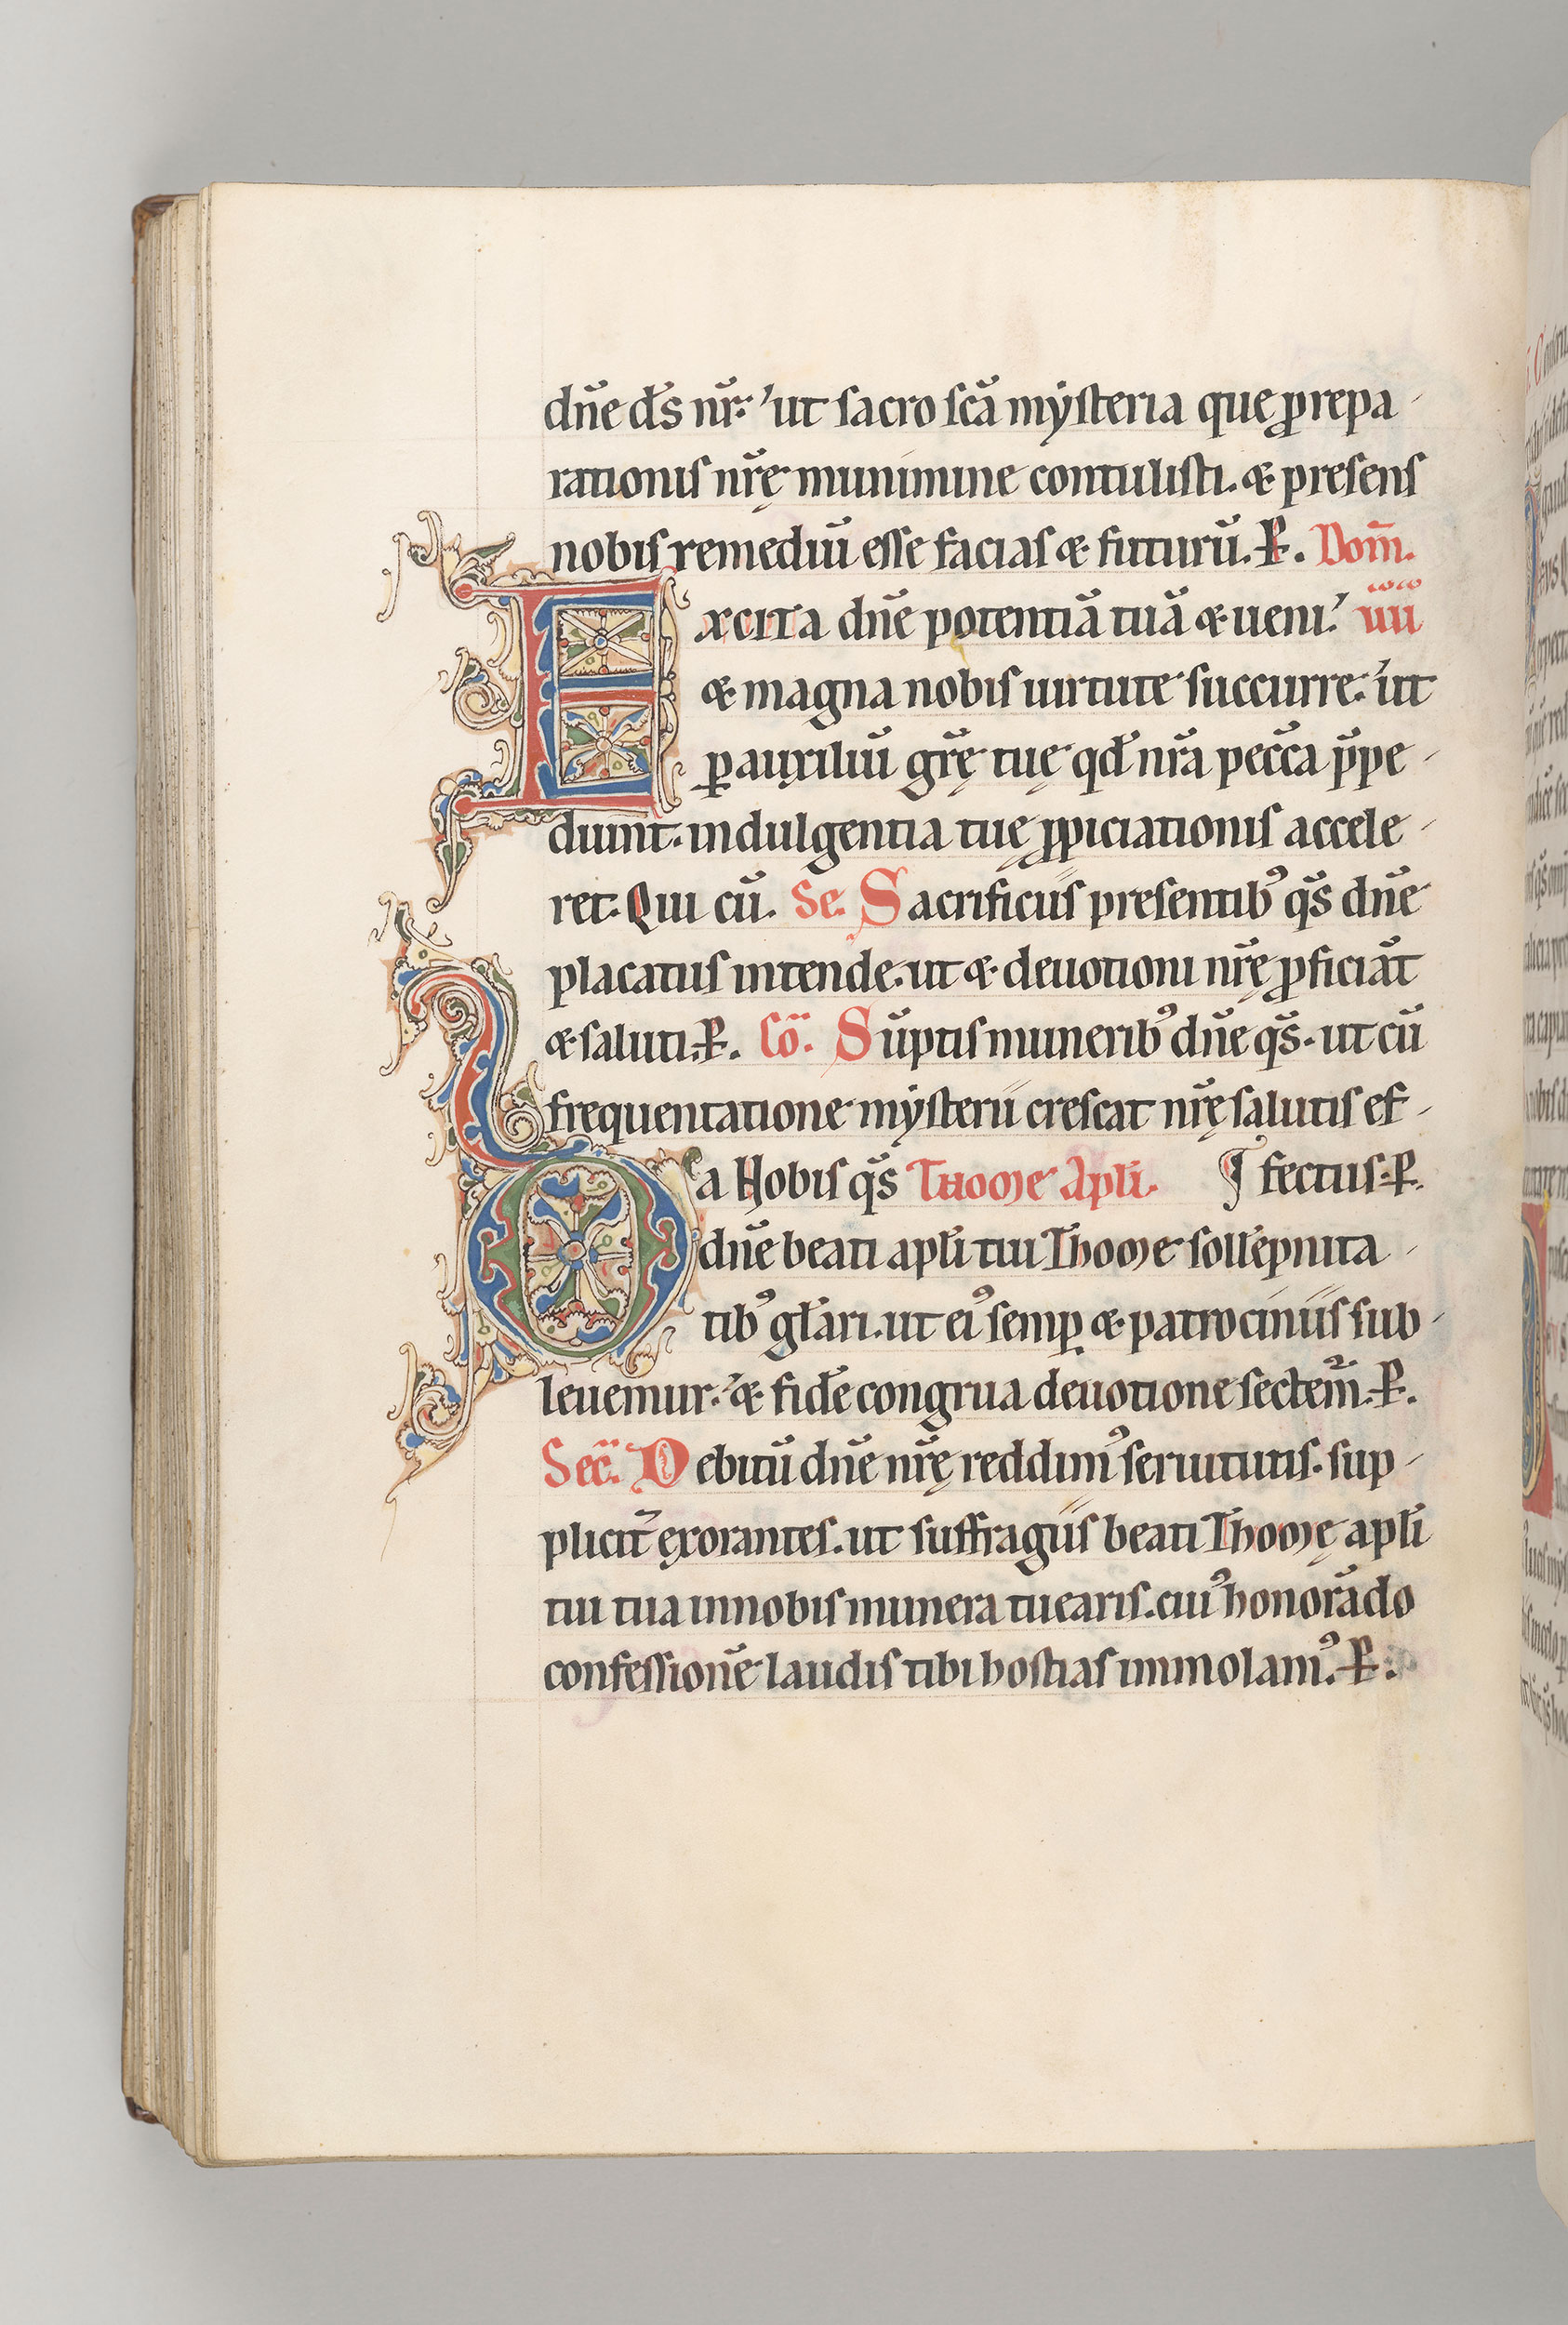 dn̄e d̄s nr̄: ut sacro scā mẏsteria que ꝓrepa
rationis nr̄ę munimine contulisti. & presens
nobis remediū esse facias & futurū. P̶. Dom̄.
Excita dn̄e potentiā tuā & ueni: iiii
& magna nobis uirtute succurre: ut
ꝑ auxiliū gr̄ę tuę qd̄ nr̄a pecc̄a p̄pe
diunt. indulgentia tue ꝓpiciationis accele
ret. Qui cū. Se. Sacrificiis presentibꝰ qs̄ dn̄e
placatus intende. ut & deuotioni nr̄ę ꝓficiāt
& saluti. P̶. Co̅. Sūptis muneribꝰ dn̄e qs̄. ut cū
frequentatione mẏsterii crescat nr̄ę salutis ef
Da Nobis qs̄ Thome Apl̄i. fectus. P̶.
dn̄e beati apl̄i tui Thome sollēpnita
tibꝰ gl̄ari. ut eiꝰ semꝑ & patrociniis sub
leuemur: & fidē congrua deuotione sectem̄. P̶.
Sec̄. Debitū dn̄e nr̄ę reddimꝰ seruitutis. sup
plicit̄ ęxorantes. ut suffragiis beati Thomę apl̄i
tui tua in nobis munera tuearis. cuiꝰ honorādo
confessionē laudis tibi hostias immolamꝰ. P̶.